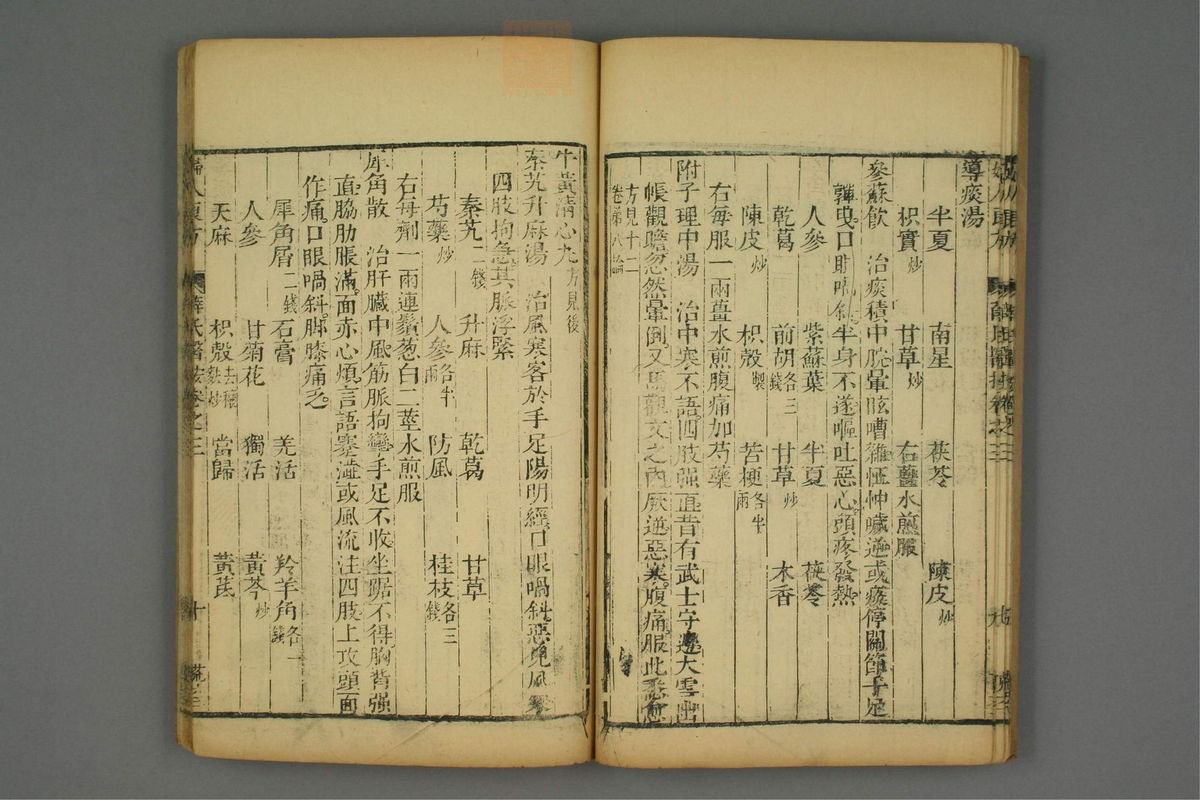 導痰湯
半夏 南星 茯苓 陳皮炒
枳實炒 甘草炒 右薑水煎服
參蘇飲 治痰積中脘暈眩嘈雜怔忡噦逆或痰停關節手足
嚲曳口眼喎斜半身不遂嘔吐惡心頭疼發熱
人參 紫蘇葉 半夏 茯苓
乾葛 前胡各三錢 甘草炒 木香
陳皮炒 枳殼製 苦梗各半兩
右每服一兩薑水煎腹痛加芍藥
附子理中湯 治中寒不語四肢强直昔有武士守邊大雪出
帳觀瞻忽然暈倒又馬觀文之內厥逆惡寒腹痛服此悉愈
方見十二
卷第八論
牛黃清心丸方見後
秦艽升麻湯 治風寒客於手足陽明經口眼喎斜惡見風寒
四肢拘急其脉浮緊
秦艽二錢 升麻 乾葛 甘草
芍藥炒 人參各半兩 防風 桂枝各三錢
右每劑一兩連鬚葱白二莖水煎服
犀角散 治肝臟中風筋脈拘攣手足不收坐踞不得胸背强
直脇肋脹滿面赤心煩言語蹇澁或風流注四肢上攻頭面
作痛口眼喎斜脚膝痛乏
犀角屑二錢 石膏 羌活 羚羊角各一錢
人參 甘菊花 獨活 黃芩炒
天麻 枳殼去穰麩炒 當歸 黃芪